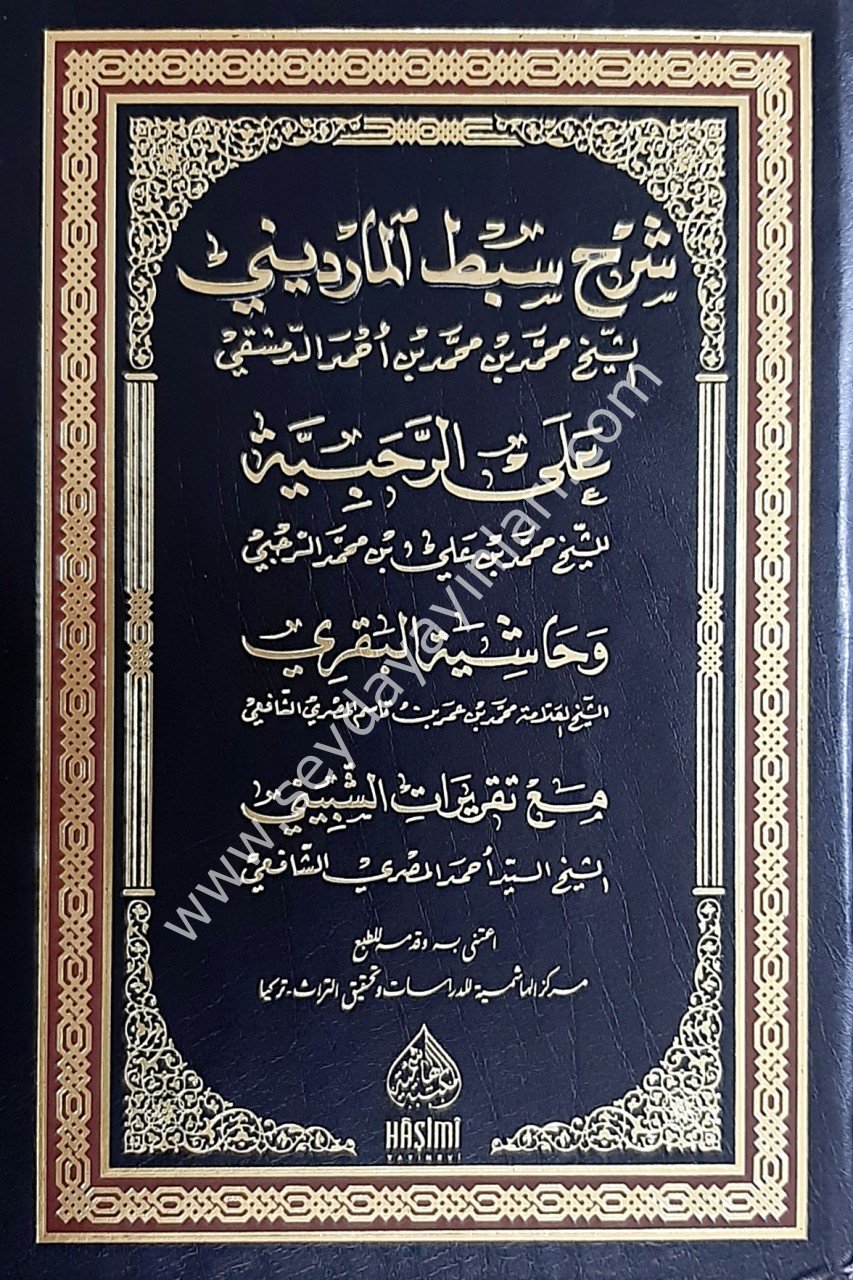 شرح سبط المارديني
الشيخ محمد بن محمد بن أحمد الدمشقي
على الرحبية
للشيخ محمد بن علي بن محمد الرحبي
وحاشية البقري
الشيخ العلامة محمد بن عمر بن قاسم المصري الشافعي
مع تقريرات الشبيني
الشيخ السيد أحمد المصري الشافعي
اعتنى به وقدمه للطبع
مركز الهاشمية للدراسات وتحقيق التراث - تركيا
المكتبة الهاشمية
HÂŞİMÎ
YAYINEVİ
www.seydayayinlari.com